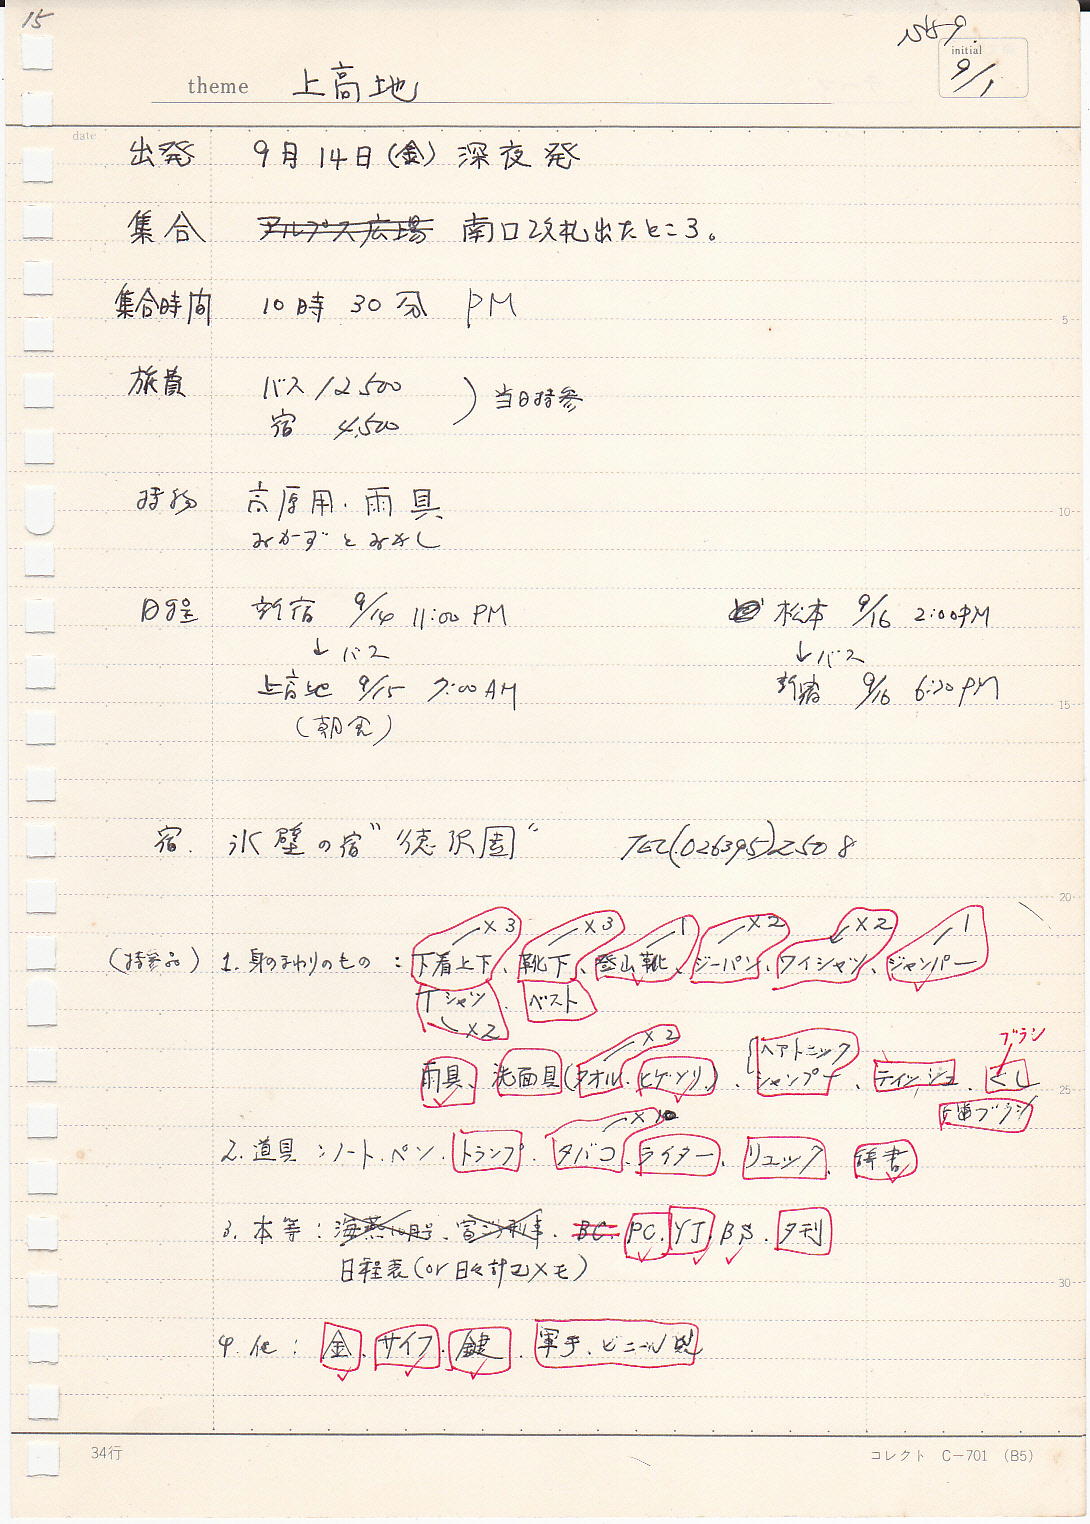 15
S59.
initial
9/1
theme 上高地
date
出発 9月14日(金) 深夜発
集合 アルプス広場 南口改札出たところ。
集合時間 10時30分 PM
5
旅費 バス 12500
宿 4,500
) 当日持参
持物 高原用・雨具
10
おかずとおかし
日程 新宿 9/14 11:00 PM
↓ バス
上高地 9/15 7:00 AM
(朝食)
松本 9/16 2:00PM
↓バス
新宿 9/16 6:30 PM
15
宿. 氷壁の宿"徳沢園" TEL(026395)2508
20
(持参品) 1. 身のまわりのもの : 下着上下 ×3、靴下 ×3、登山靴 1、ジーパン ×2、ワイシャツ ×2、ジャンパー 1
Tシャツ ×2 . ベスト
雨具、洗面具(タオル ×2. ヒゲソリ)、{ヘアトニック
シャンプー、ティッシュ、くし
ブラシ
歯ブラシ
25
2. 道具 : ノート. ペン. トランプ. タバコ ×10. ライター. リュック. 辞書
3. 本等 : BC. PC. YJ. BS. 夕刊
日程表(or 日々計画メモ)
30
4. 他 : 金、サイフ. 鍵 . 軍手、ビニール袋
34行
コレクト C-701 (B5)